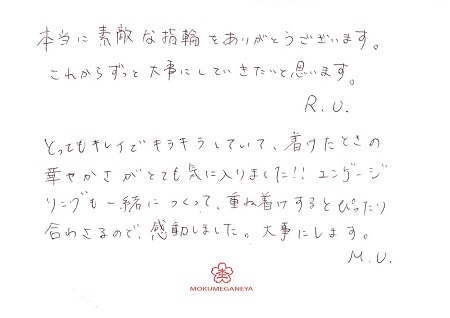 本当に素敵な指輪をありがとうございます。
これからずっと大事にしていきたいと思います。
R.U.
とってもキレイでキラキラしていて、着けたときの
華やかさがとても気に入りました!! エンゲージ
リングも一緒につくって、重ね着けするとぴったり
合わさるので、感動しました。大事にします。
M.U.
MOKUMEGANEYA